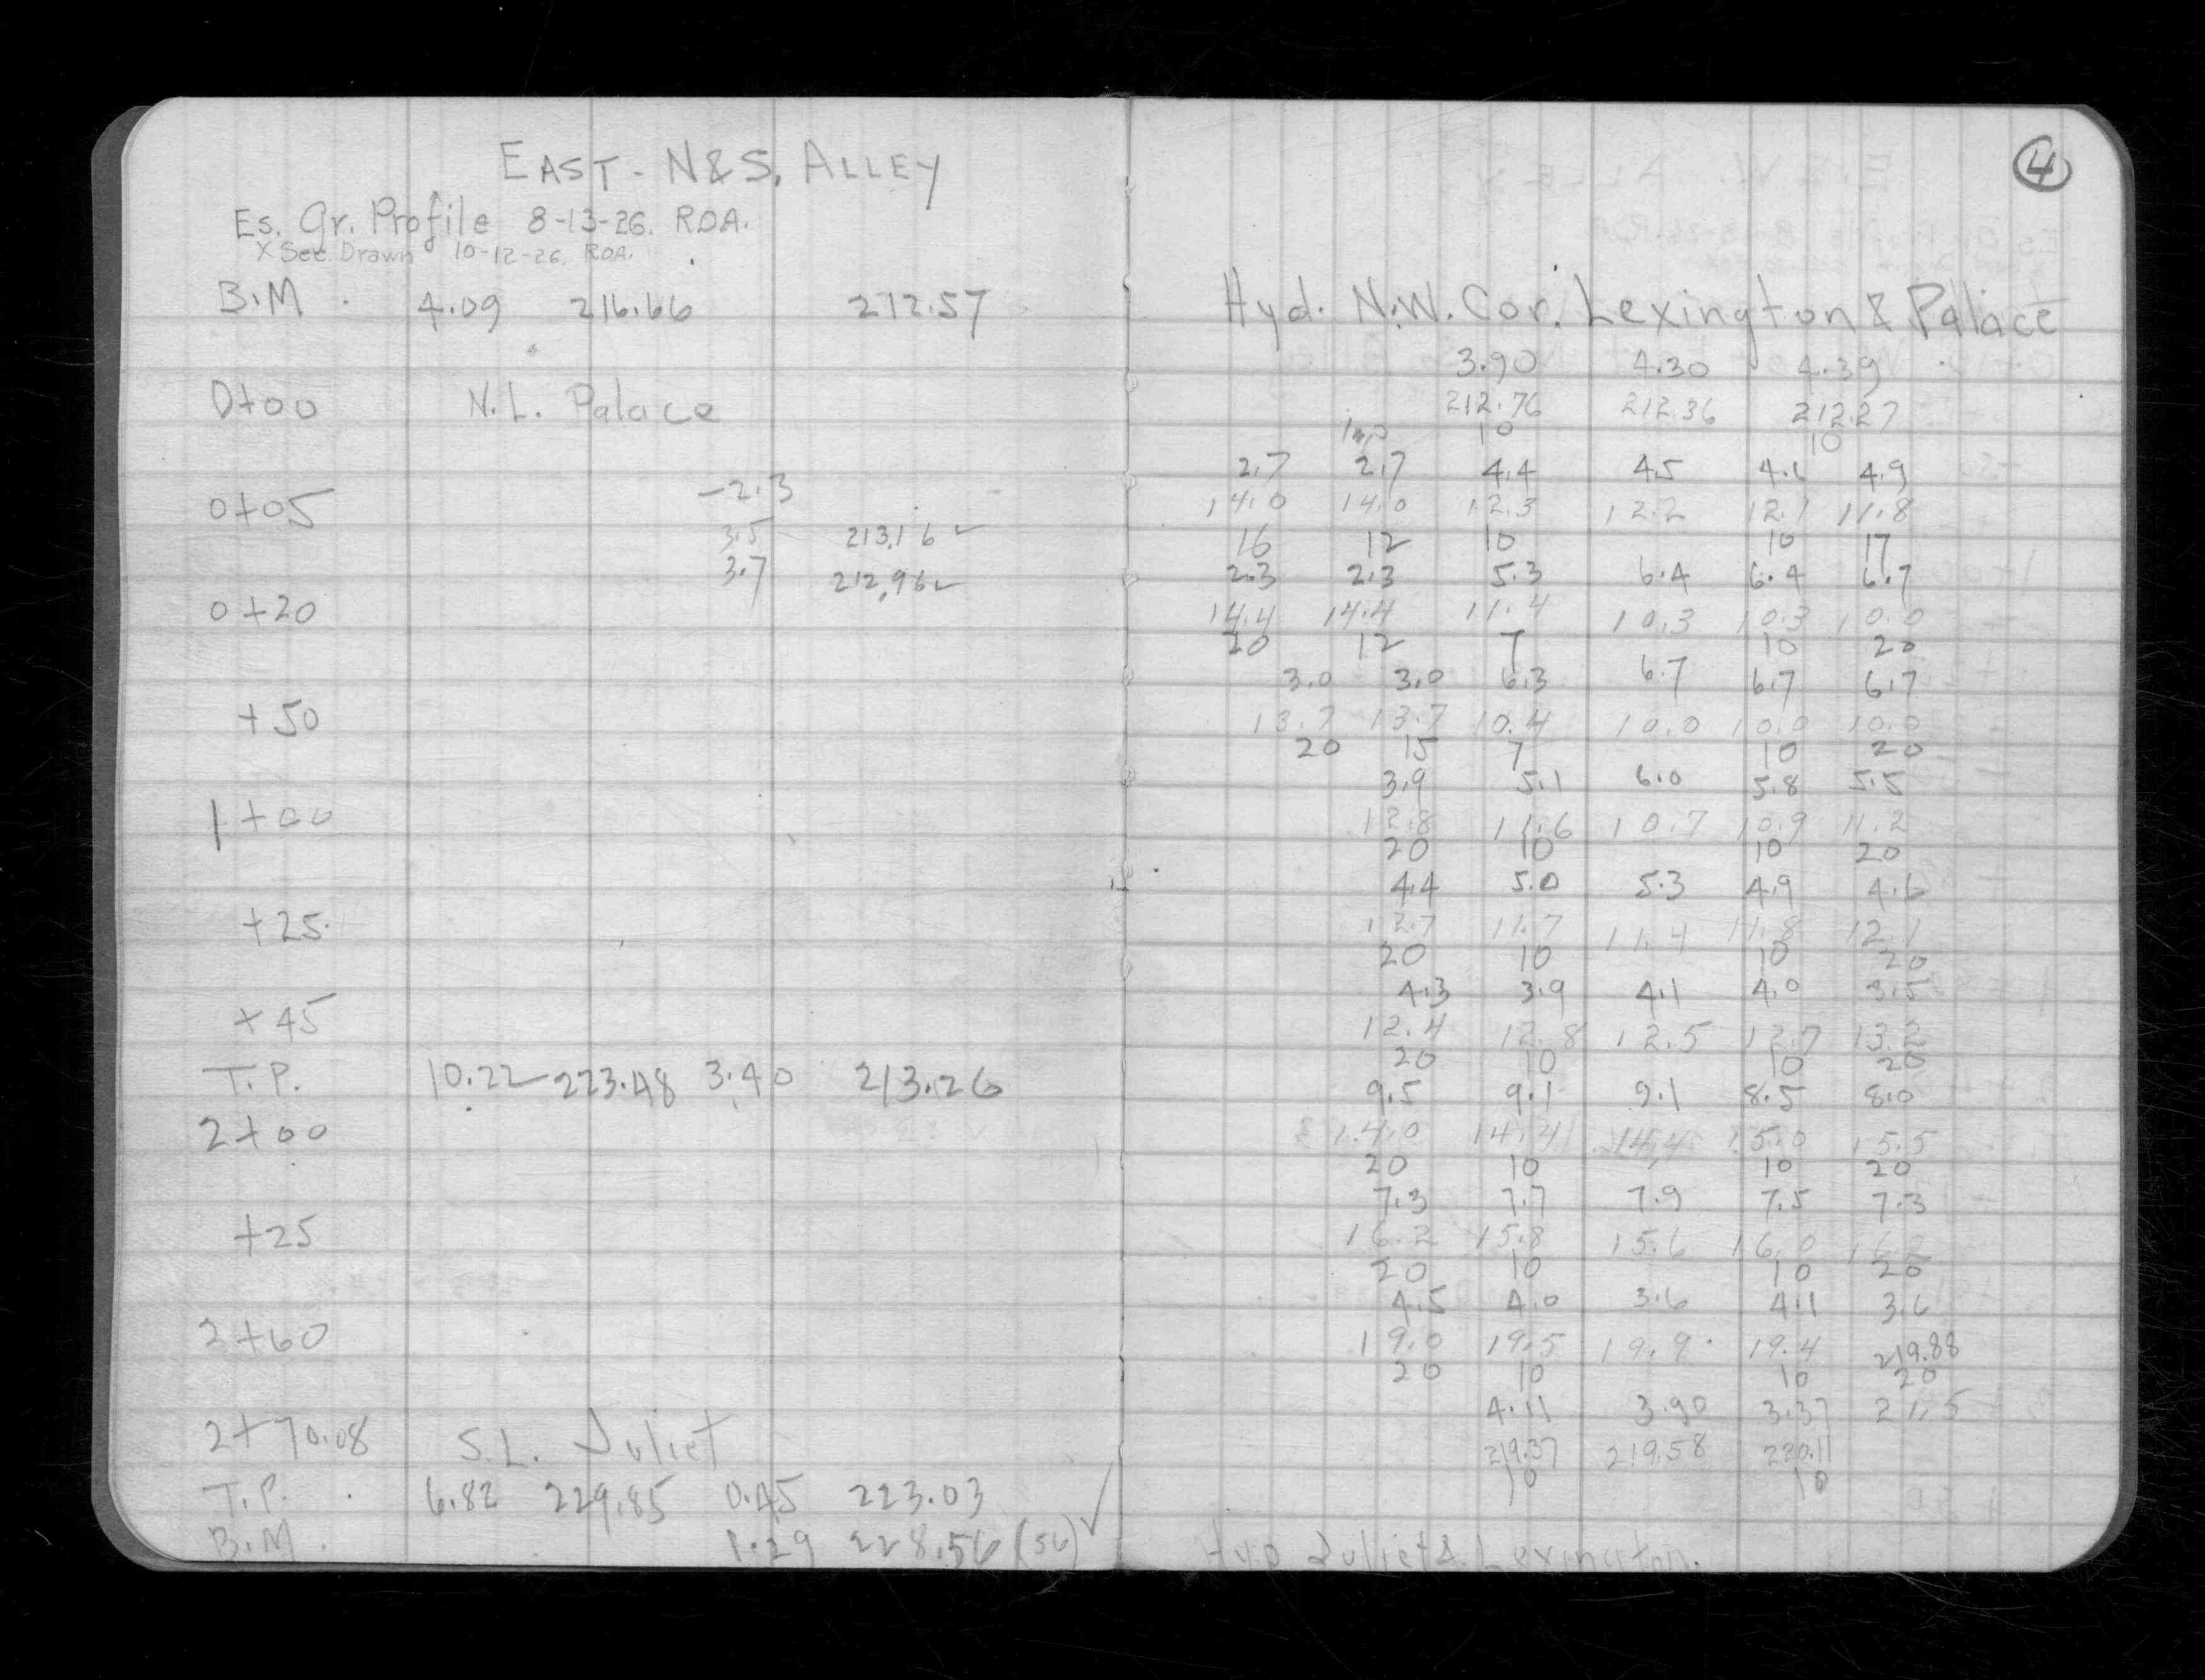 EAST - N&S. ALLEY
Es. Gr. Profile 8-13-26. ROA.
X Sec. Drawn 10-12-26. ROA.
B.M. 4.09 216.66 212.57
0+00 N.L. Palace
-2.3
0+05
3.5 213.16 ✓
3.7 212.96 ✓
0+20
+50
1+00
+25
+45
T.P. 10.22 223.48 3.40 213.26
2+00
+25
2+60
2+70.08 S.L. Juliet
T.P. 6.82 229.85 0.45 223.03
B.M. 1.29 228.56 (56) ✓
4
Hyd. N.W. Cor. Lexington & Palace
3.90 4.30 4.39
212.76 212.36 212.27
10 10
2.7 2.7 4.4 4.5 4.6 4.9
14.0 14.0 12.3 12.2 12.1 11.8
16 12 10 10 17
2.3 2.3 5.3 6.4 6.4 6.7
14.4 14.4 11.4 10.3 10.3 10.0
20 12 7 10 20
3.0 3.0 6.3 6.7 6.7 6.7
13.7 13.7 10.4 10.0 10.0 10.0
20 15 7 10 20
3.9 5.1 6.0 5.8 5.5
12.8 11.6 10.7 10.9 11.2
20 10 10 20
4.4 5.0 5.3 4.9 4.6
12.7 11.7 11.4 11.8 12.1
20 10 10 20
4.3 3.9 4.1 4.0 3.5
12.4 12.8 12.5 12.7 13.2
20 10 10 20
9.5 9.1 9.1 8.5 8.0
14.0 14.4 14.4 15.0 15.5
20 10 10 20
7.3 7.7 7.9 7.5 7.3
16.2 15.8 15.6 16.0 16.2
20 10 10 20
4.5 4.0 3.6 4.1 3.6
19.0 19.5 19.9 19.4 219.88
20 10 10 20
4.11 3.90 3.37 21.5
219.37 219.58 220.11
10 10
Hyd Juliet & Lexington.